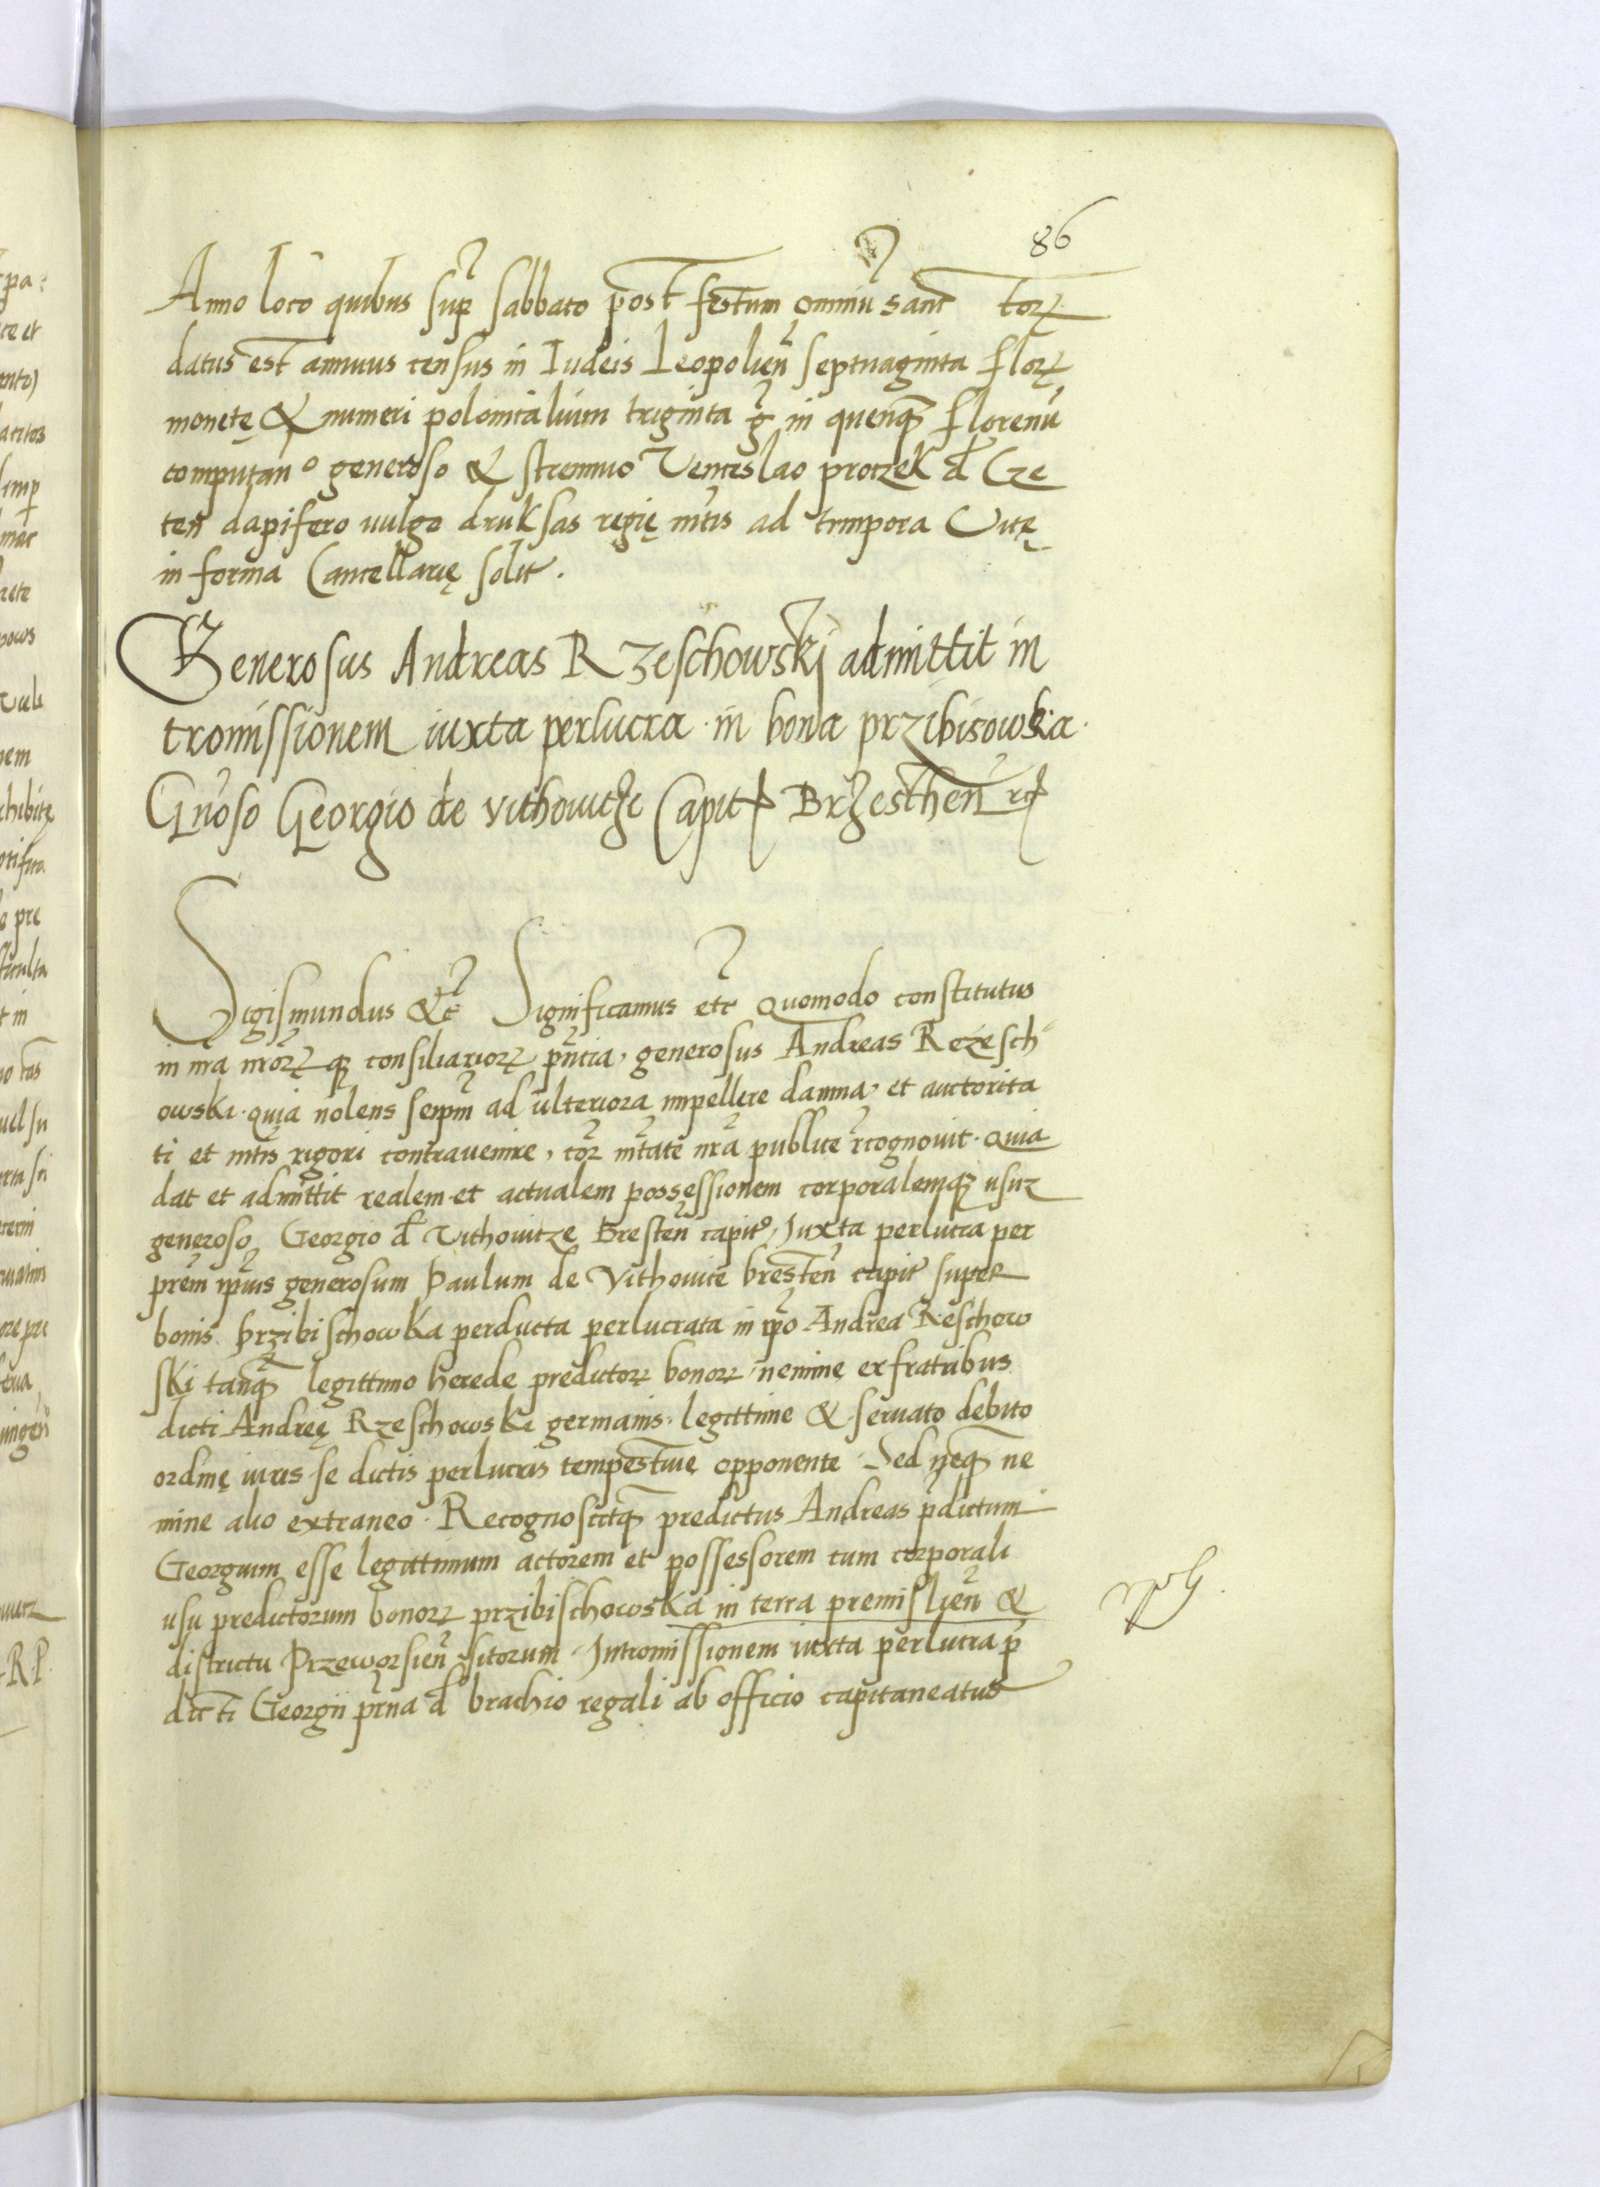 86
Anno loco quibus supꝛ Sabbato post festum omniū sanc toꝝ
datus est annuus census in Iudeis Leopolieñ septuaginta floꝝ
monetę & numeri polonicaluim triginta g̃ in quemq̃ florenū
computanᵒ generoso & strennuo Venceslao proczek đ Cze
ten dapifero uulgo druksas regię mtis ad tempora Uitę
in forma Cancellarię solit.
Generosus Andreas Rzeschowski admittit in
tromissionem iuxta perlucra in bona przibisowska
Gñoso Georgio de vithowicze Capit Brzeschen̄ rcꝭ
Sigismundus &c̄ Significamus etc Quomodo constitutus
in nr̄a nroꝝ qꝫ consiliarioꝝ pn̄tia, generosus Andreas Rezesch
owski quia nolens seipm̄ ad ulteriora impellere damna, et auctorita
ti et mtis rigori contrauenire, corꝫ mtate nr̄a publice rcognouit quia
dat et admittit realem et actualem possessionem corporalemqꝫ usuꝫ
generoso Georgio đ Vithowitze Bresten̄ capitᵒ, Iuxta perlucra per
prēm ipius generosum Paulum de Vithovice brestēn capit̄ super
bonis Przibischowka perducta perlucrata in ip̄o Andrea Reschow
ski tanq̃ legittimo herede predictoꝝ bonoꝝ nemine ex fratribus
dicti Andreę Rzeschowski germanis legittime & seruato debito
ordinę iuris se dictis perlucris tempestiuę opponente Sed neq̃ ne
mine alio extraneo Recognoscitq̃ predictus Andreas pdictum
Georgium esse legittimum actorem et possessorem cum corporali
usu predictorum bonoꝝ przibischowska in terra premislieñ &
districtu Przeworsieñ sitorum Intromissionem iuxta perlucra p̄
dicti Georgii prna đ brachio regali ab officio capitaneatus